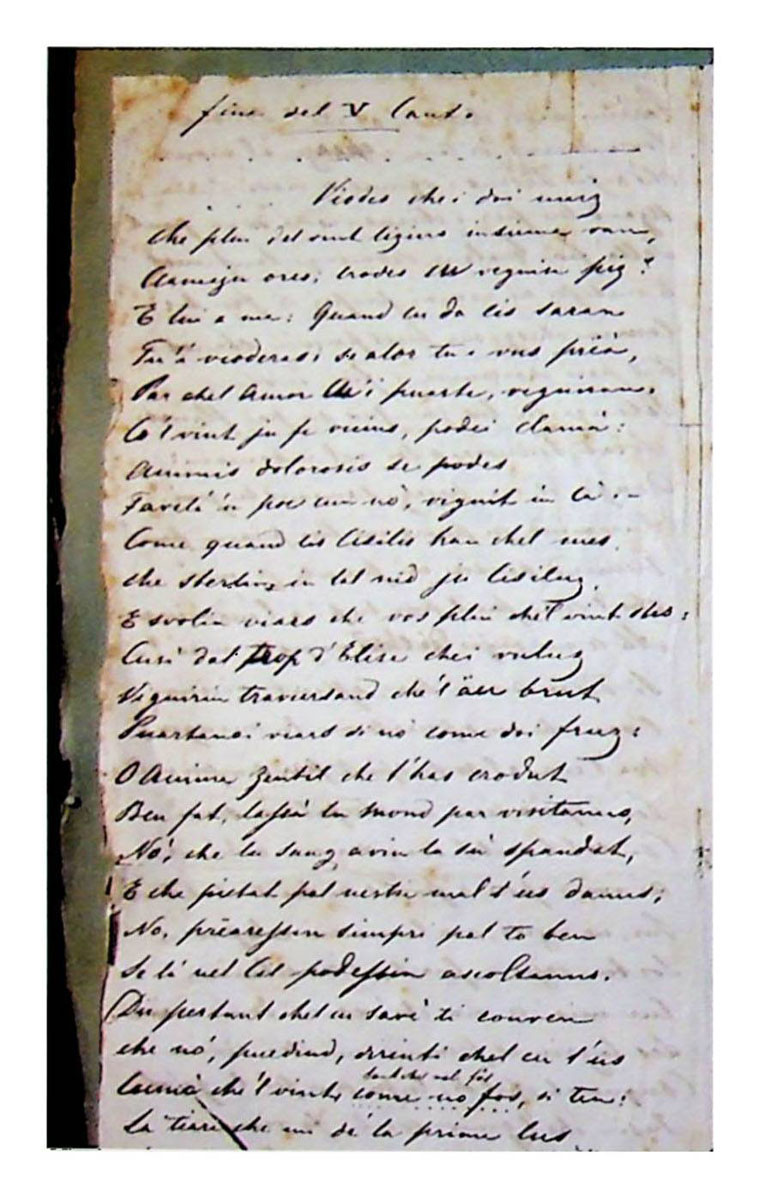 fine del V Cant.
Viodis chei doi
che plui del vint ligiers insieme van,
clamaju ores; crodes tu vegnin
E lui a me: Quand cu da lis saran
Tu 'a vioderas; se alor tu vus prèà,
Par chel Amor ch'i puarte, vegniran.
Co 'l vint ju fs vicins, podei clamà:
Animis dolorosis se podes
Favelà 'n poc cun nò, vignit in cà. –
Come quand lis Cisilis han chel mes
che in tal nid ju Cisiluz
E svolin viars che vos plui che 'l vint
Cusì dal trop d'Elise chei
Vegnirin traversand che 'l äer brut
Puartansi viars di nò come doi fruz:
O Anime zentil che l'has crodut
Ben fat, lassà lu mond par visitanus,
Nò, che lu sang avin la sù spandut,
E che pietat pal nestri mal t'us damus;
No, prèaressin simpri pal to ben
Se là nel Cil podessin ascoltanus.
Du pertant chel cu savè ti conven
che nò, puedind, disinti chel cu t'ûs
nel fos
che 'l vint come no fos, si ten:
La tiare che mi dè la prime lus